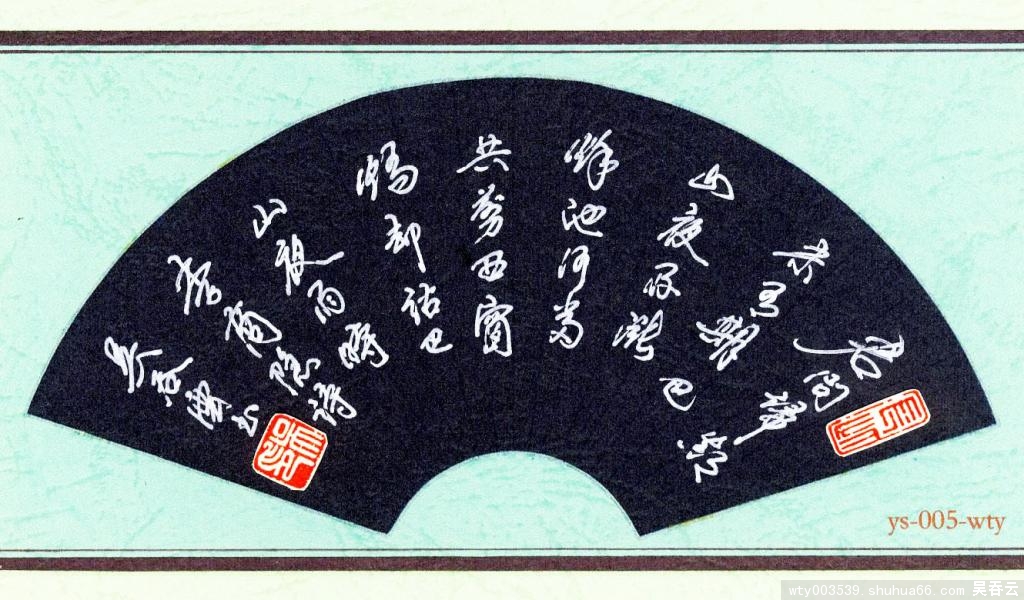 君問歸期
未有期巴
山夜雨漲
秋池何當
共剪西窗
燭却話巴
山夜雨時
李商隐詩
吴吞雲书
ys-005-wty
wty003539 shuhua66.com 吴吞云